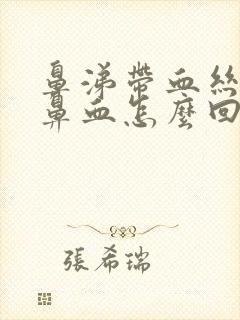 鼻涕帶血絲
鼻血怎麼回
張希瑞